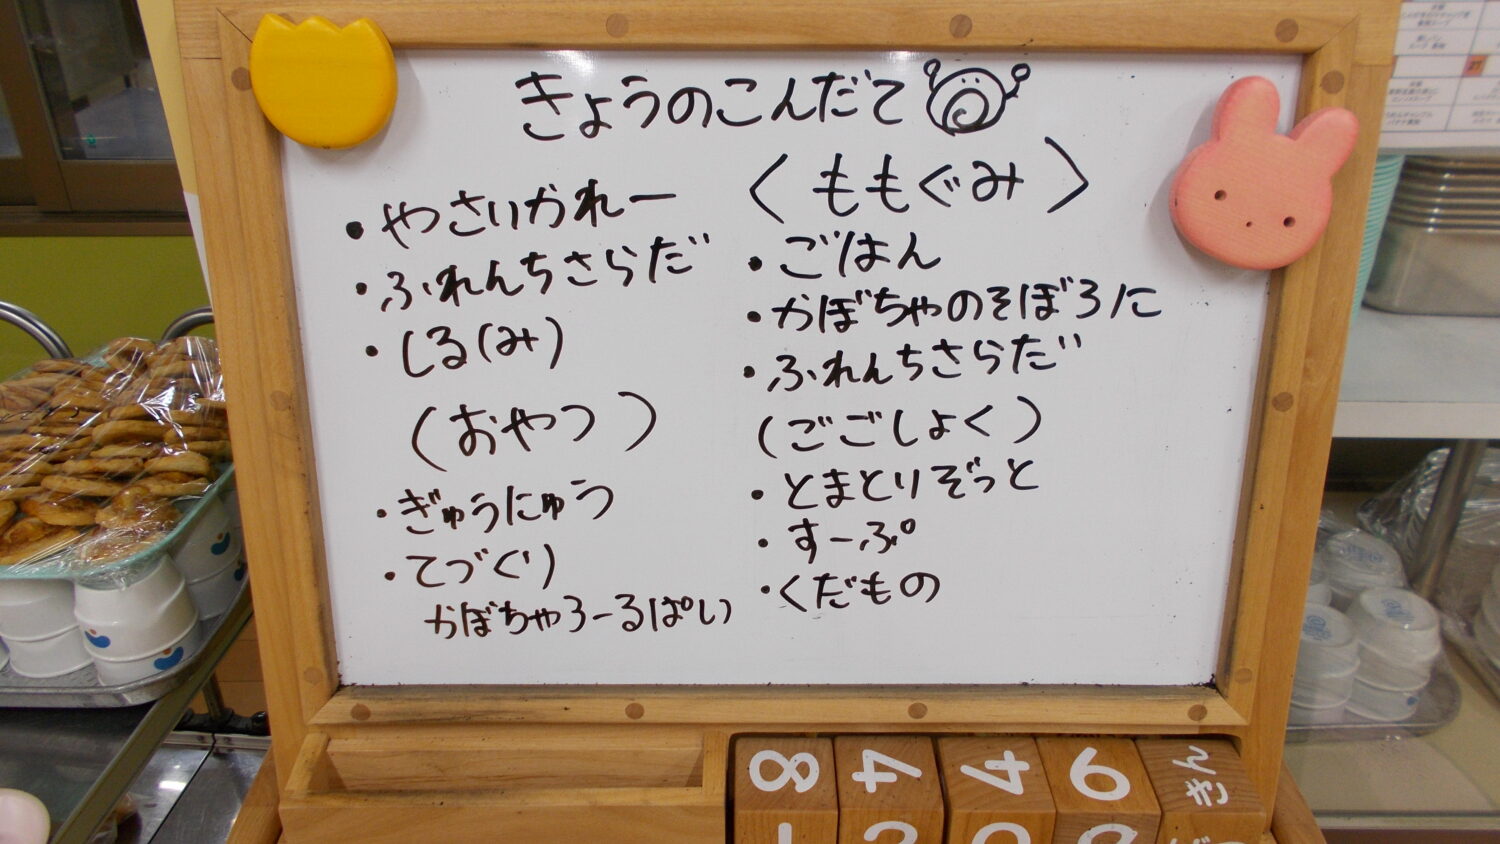 きょうのこんだて
・やさいかれー
・ふれんちさらだ
・しる(み)
(おやつ)
・ぎゅうにゅう
・てづくり
かぼちゃろーるぱい
〈ももぐみ〉
・ごはん
・かぼちゃのそぼろに
・ふれんちさらだ
(ごごしょく)
・とまとりぞっと
・すーぷ
・くだもの
8 4 4 6 きん